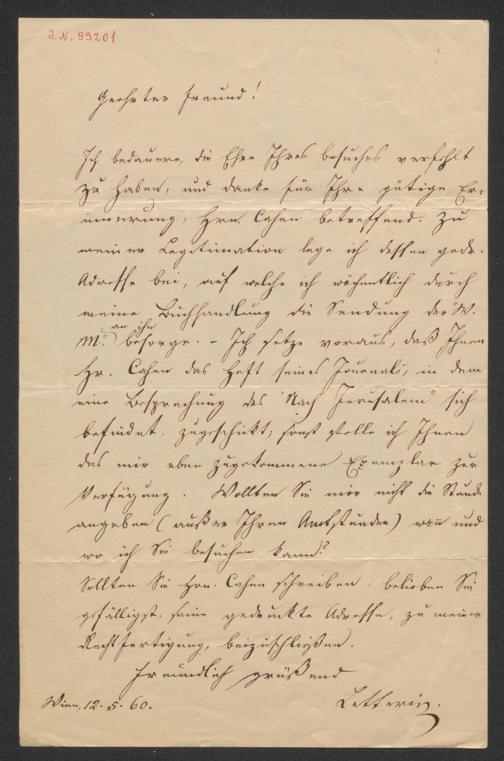 J. N. 99201
Geehrter Freund!
Ich bedauere, die Ehre Ihres Besuches verfehlt
zu haben, und danke für Ihre gütige Er-
innerung, Hrn. Cahen betreffend. Zu
meiner Legitimation lege ich dessen gedr.
Adresse bei, auf welche ich wöchentlich durch
meine Buchhandlung die Sendung der "W.
M." an ihn besorge. – Ich setze voraus, daß Ihnen
Hr. Cahen das Heft seines Journals, in dem
eine Besprechung des "Nach Jerusalem" sich
befindet, zugeschickt; sonst stelle ich Ihnen
das mir eben zugekommene Exemplar zur
Verfügung. Wollten Sie mir nicht die Stunde
angeben (außer Ihren Amtsstunden) wann und
wo ich Sie besuchen kann?
Sollten Sie Hrn. Cahen schreiben, belieben Sie
gefälligst, seine gedruckte Adresse, zu meiner
Rechtfertigung, beizuschließen.
Freundlich grüßend
Wien, 12. 5. 60. Letteris.